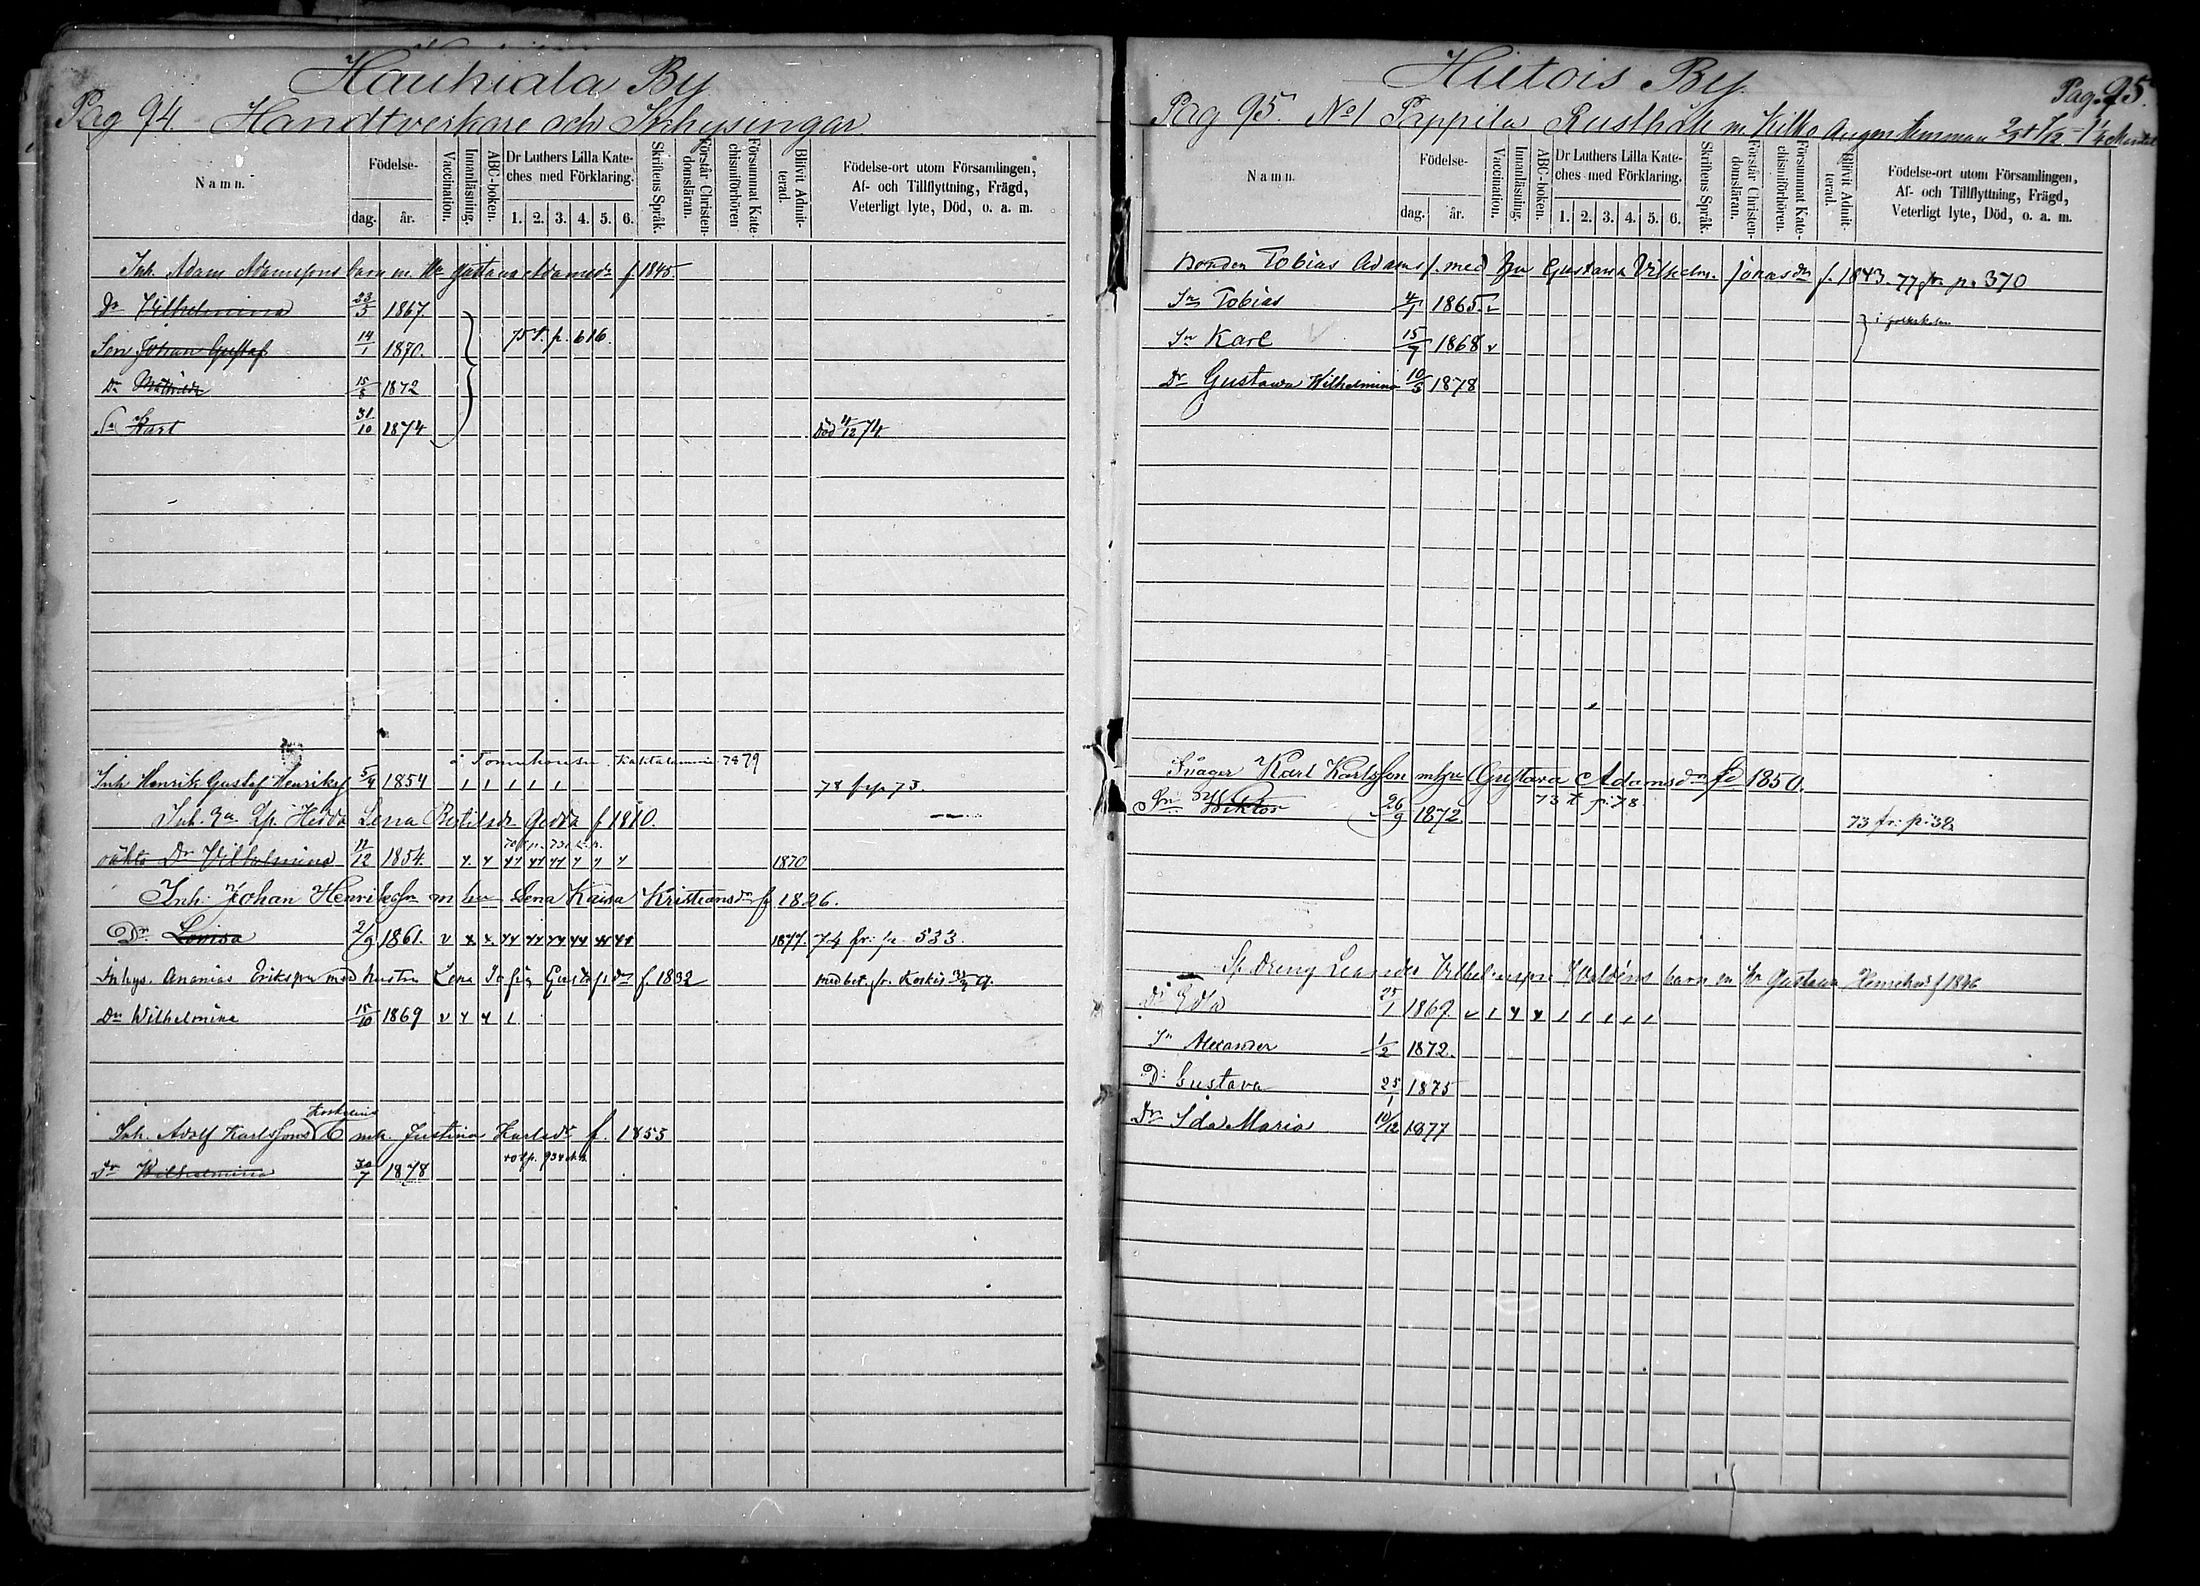 Hauhiala By
Pag 94. Handtverkare och Inhysingar
Namn.
Födelse-
dag.
år.
Vaccination.
Innanläsning.
ABC-boken.
Dr Luthers Lilla Kate-
ches med Förklaring.
1. 2. 3. 4. 5. 6.
Skriftens Språk.
Förstår Christen-
domsläran.
Försummat Kate-
chismiförhören
Blifvit Admit-
terad.
Födelse-ort utom Församlingen,
Af- och Tillflyttning, Frägd,
Veterligt lyte, Död, o. a. m.
Inh. Adam Adamssons barn m. Hu Gustava Adamsdr f. 1845.
Dr Vilhelmina 23/3 1867.
Son Johan Gustaf 14/1 1870. 75 t. p. 616
Dr Mathilda 15/3 1872
Sn Karl 31/10 1874 Död 4/12 74.
Inh Henrik Gustaf Henrikss 5/4 1854 1 1 1 1 1 78 79 78 fr p 73
Inh. Lena Bertilsdr Gedda f 1810.
Dr Vilhelmina 12/12 1854 1870
Inh: Johan Henriksson m hu Lena Kaisa Kristiansdr f. 1826.
Dr Lovisa 2/9 1861. v 1877. 74 fr. p. 533.
Inhys. Ananias Eriksson med hustru Lena Sofia Gustafsdr f. 1832 med bet. fr. Koskis
Dr Wilhelmina 15/10 1869 v
Koskelin
Inh. Adolf Karlssons m h. Justina Karlsdr f. 1855
Dr Wilhelmina 30/7 1878
Hietois By
Pag. 95.
Pag 95. No 1 Pappila Rusthåll m Kilko Augm
Namn.
Födelse-
dag.
år.
Vaccination.
Innanläsning.
ABC-boken.
Dr Luthers Lilla Kate-
ches med Förklaring.
1. 2. 3. 4. 5. 6.
Skriftens Språk.
Förstår Christen-
domsläran.
Försummat Kate-
chismiförhören.
Blifvit Admit-
terad.
Födelse-ort utom Församlingen,
Af- och Tillflyttning, Frägd,
Veterligt lyte, Död, o. a. m.
Bonden Tobias Adamss. med hu Gustava Vilhelm. Jonasdr f. 1843. 77 fr. p. 370
Sn Tobias 4/1 1865. v
i folkskolan
Sn Karl 15/9 1868 v
Dr Gustawa Wilhelmina 10/3 1878
Svåger Karl Karlsson m hu Gustava Adamsdr fd 1850.
Sn Wiktor 26/9 1872 73 t p. 78. 73 fr. p. 32
Sp. Dreng Leander Vilhelmsson barn m hr Gustava Henriksd f 1846
Dr Edla 25/1 1867. v
Sn Alexander 1/2 1872.
Dr Gustava 25/1 1875
Dr Ida Maria 10/12 1877